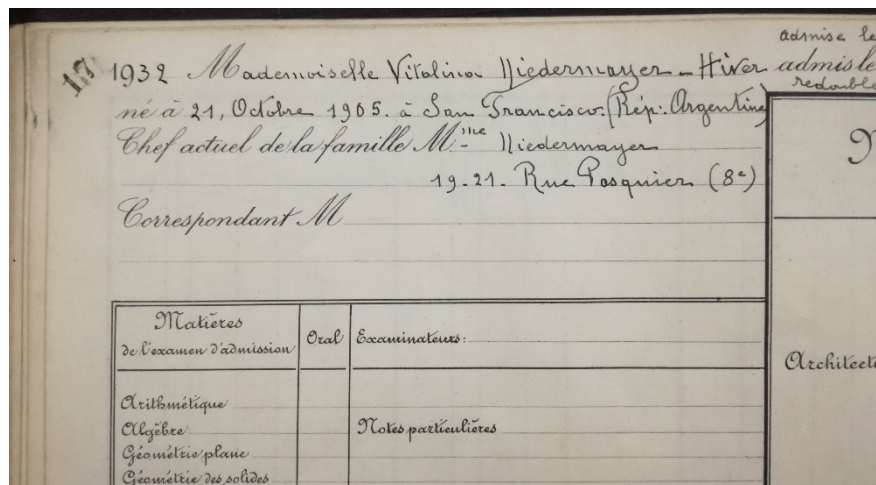 admise le
17 1932 Mademoiselle Vitalina Niedermayer - Hiver admis le
redouble
né à 21, Octobre 1905. à San Francisco. (Rép. Argentine)
Chef actuel de la famille M.me Niedermayer
19-21- Rue Pasquier (8e)
Correspondant M
Matières
de l'examen d'admission
Oral
Examinateurs:
Architecte
Arithmétique
Algèbre
Notes particulières
Géométrie plane
Géométrie des solides